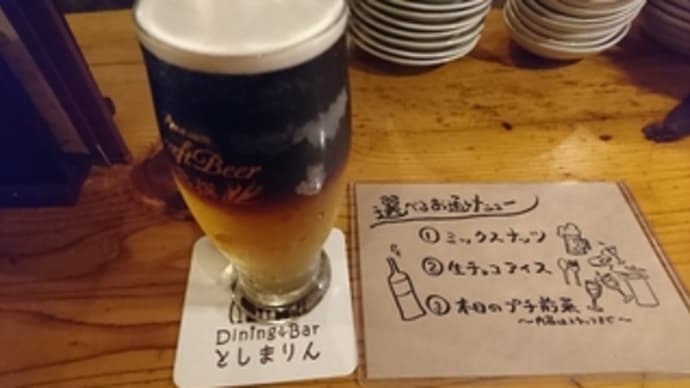 Craft Beer
Dining & Bar
としまりん
選べるお通しメニュー
① ミックスナッツ
② 生チョコアイス
③ 本日のプチ前菜
〜内容はスタッフまで〜